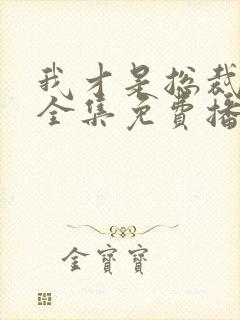 我才是总裁
全集免费播
金宝宝